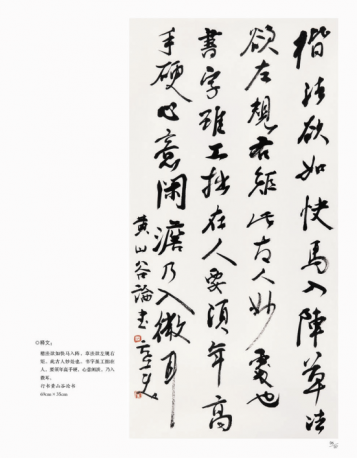 楷法欲如快馬入陣草法
欲左規右矩此古人妙處也
書字雖工拙在人要須年高
手硬心意閑澹乃入微耳
黄山谷論書
◇释文：
楷法欲如快马入阵，草法欲左规右
矩，此古人妙处也。书字虽工拙在
人，要须年高手硬，心意闲淡，乃入
微耳。
行书黄山谷论书
69cm×35cm